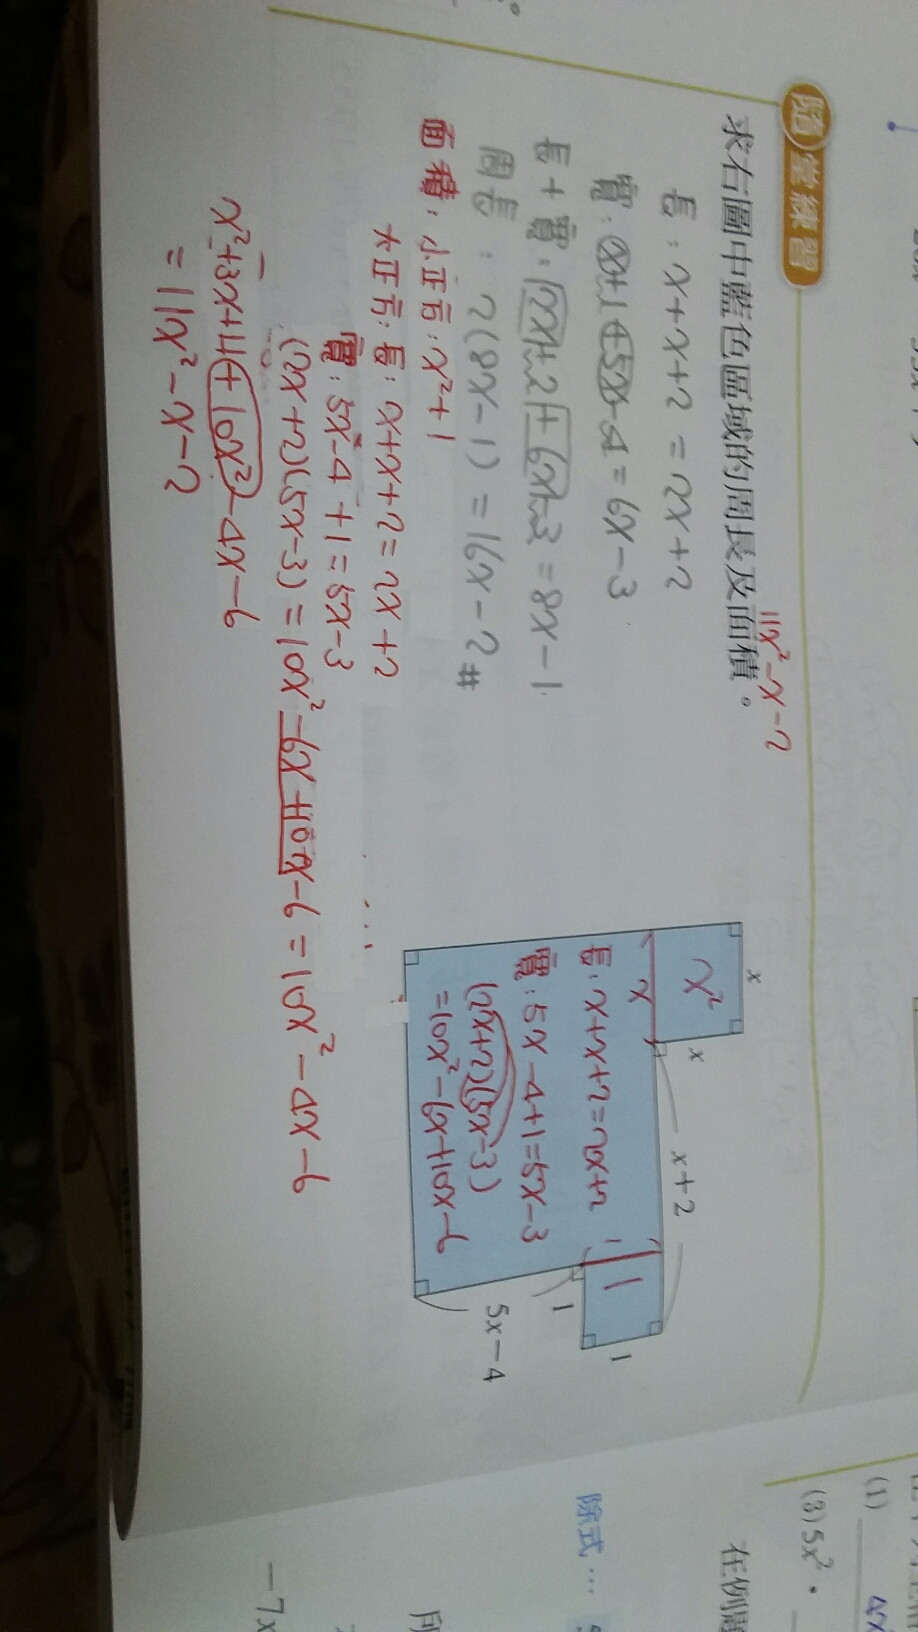 隨堂練習
求右圖中藍色區域的周長及面積。
11x²-x-2
長：x+x+2=2x+2
寬：x+1+5x-4=6x-3
長+寬：2x+2+6x-3=8x-1
周長：2(8x-1)=16x-2#
面積：小正方：x²+1
大正方：長：x+x+2=2x+2
寬：5x-4+1=5x-3
(2x+2)(5x-3)=10x²-6x+10x-6=10x²-4x-6
=11x²-x-2
x
x²
x
x
x+2
長：x+x+2=2x+2
寬：5x-4+1=5x-3
(2x+2)(5x-3)
=10x²-6x+10x-6
1
1
1
1
5x-4
(1)
(3) 5x²·
在例題
除式…
-7x